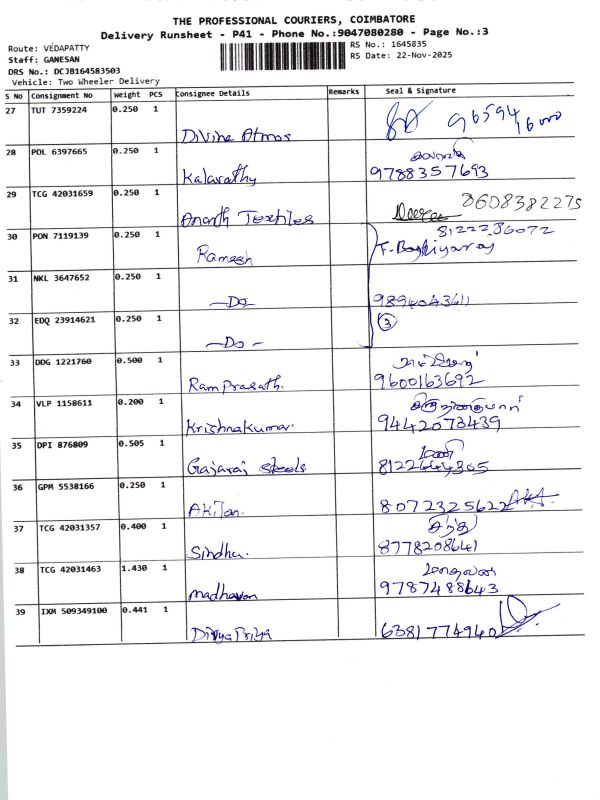 THE PROFESSIONAL COURIERS, COIMBATORE
Delivery Runsheet - P41 - Phone No.:9047080280 - Page No.:3
Route: VEDAPATTY
RS No.: 1645835
Staff: GANESAN
RS Date: 22-Nov-2025
DRS No.: DCJB164583503
Vehicle: Two Wheeler Delivery
S No Consignment No Weight PCS Consignee Details Remarks Seal & Signature
27 TUT 7359224 0.250 1 Divine Atmos
28 POL 6397665 0.250 1 Kalavathy 9788357693
29 TCG 42031659 0.250 1 Ananth Textiles 8608382275
30 PON 7119139 0.250 1 Ramesh 8122286072
31 NKL 3647652 0.250 1 -Do- 9894043611
32 EDQ 23914621 0.250 1 -Do- 3
33 DDG 1221760 0.500 1 Ramprasath. 9600163692
34 VLP 1158611 0.200 1 Krishnakumar. 9442073439
35 DPI 876809 0.505 1 Gajaraj Steels மணி 8122644365
36 GPM 5538166 0.250 1 Akilan. 8072325622
37 TCG 42031357 0.400 1 Sindhu. சிந்து 8778208641
38 TCG 42031463 1.430 1 madhavan மாதவன் 9787488643
39 IXM 509349100 0.441 1 DivyaPriya 6381774940